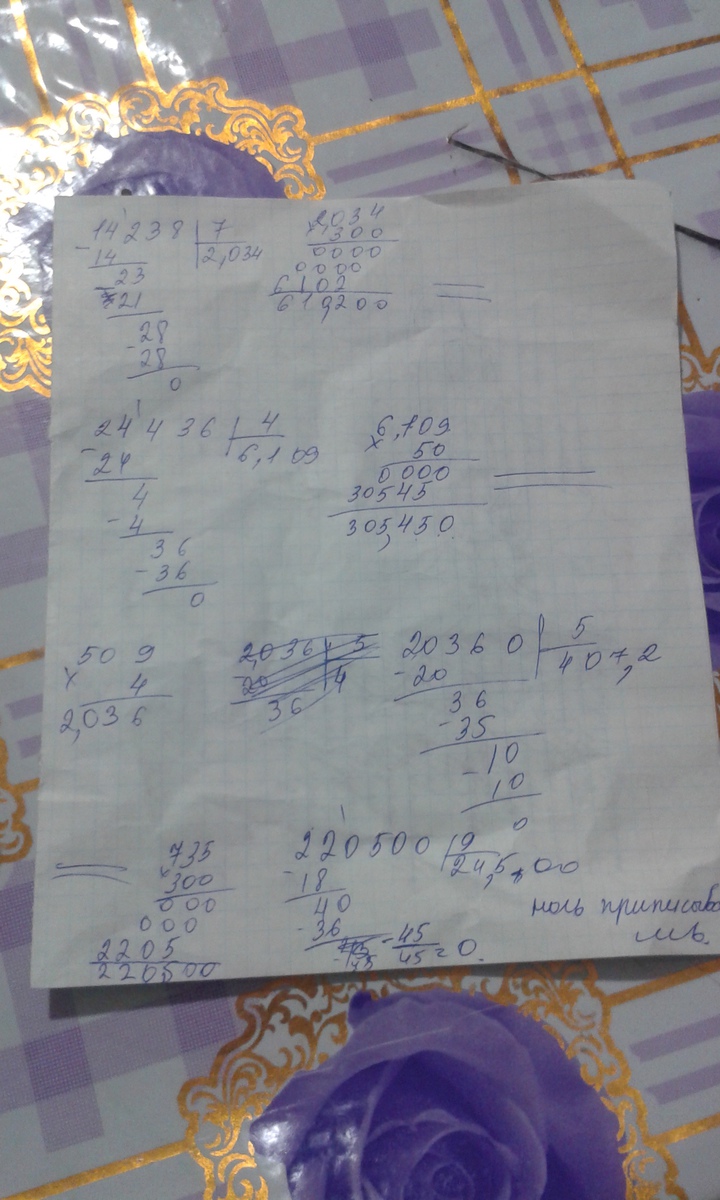 14'238 | 7
- 14 2,034
- 23
21
- 28
28
0
2,034
x 300
0000
0000
6102
619200
24'4 36 | 4
- 24 6,109
4
- 4
36
- 36
0
6,109
x 50
0000
30545
305,450.
509
x 4
2,036
2,036 | 5
- 20 4
36
2,0360 | 5
- 20 407,2
36
- 35
- 10
10
0
735
x 300
000
000
2205
220500
220500 | 9
- 18 24,5,00
40
- 36
- 45
45 = 0.
ноль приписыва
ли.